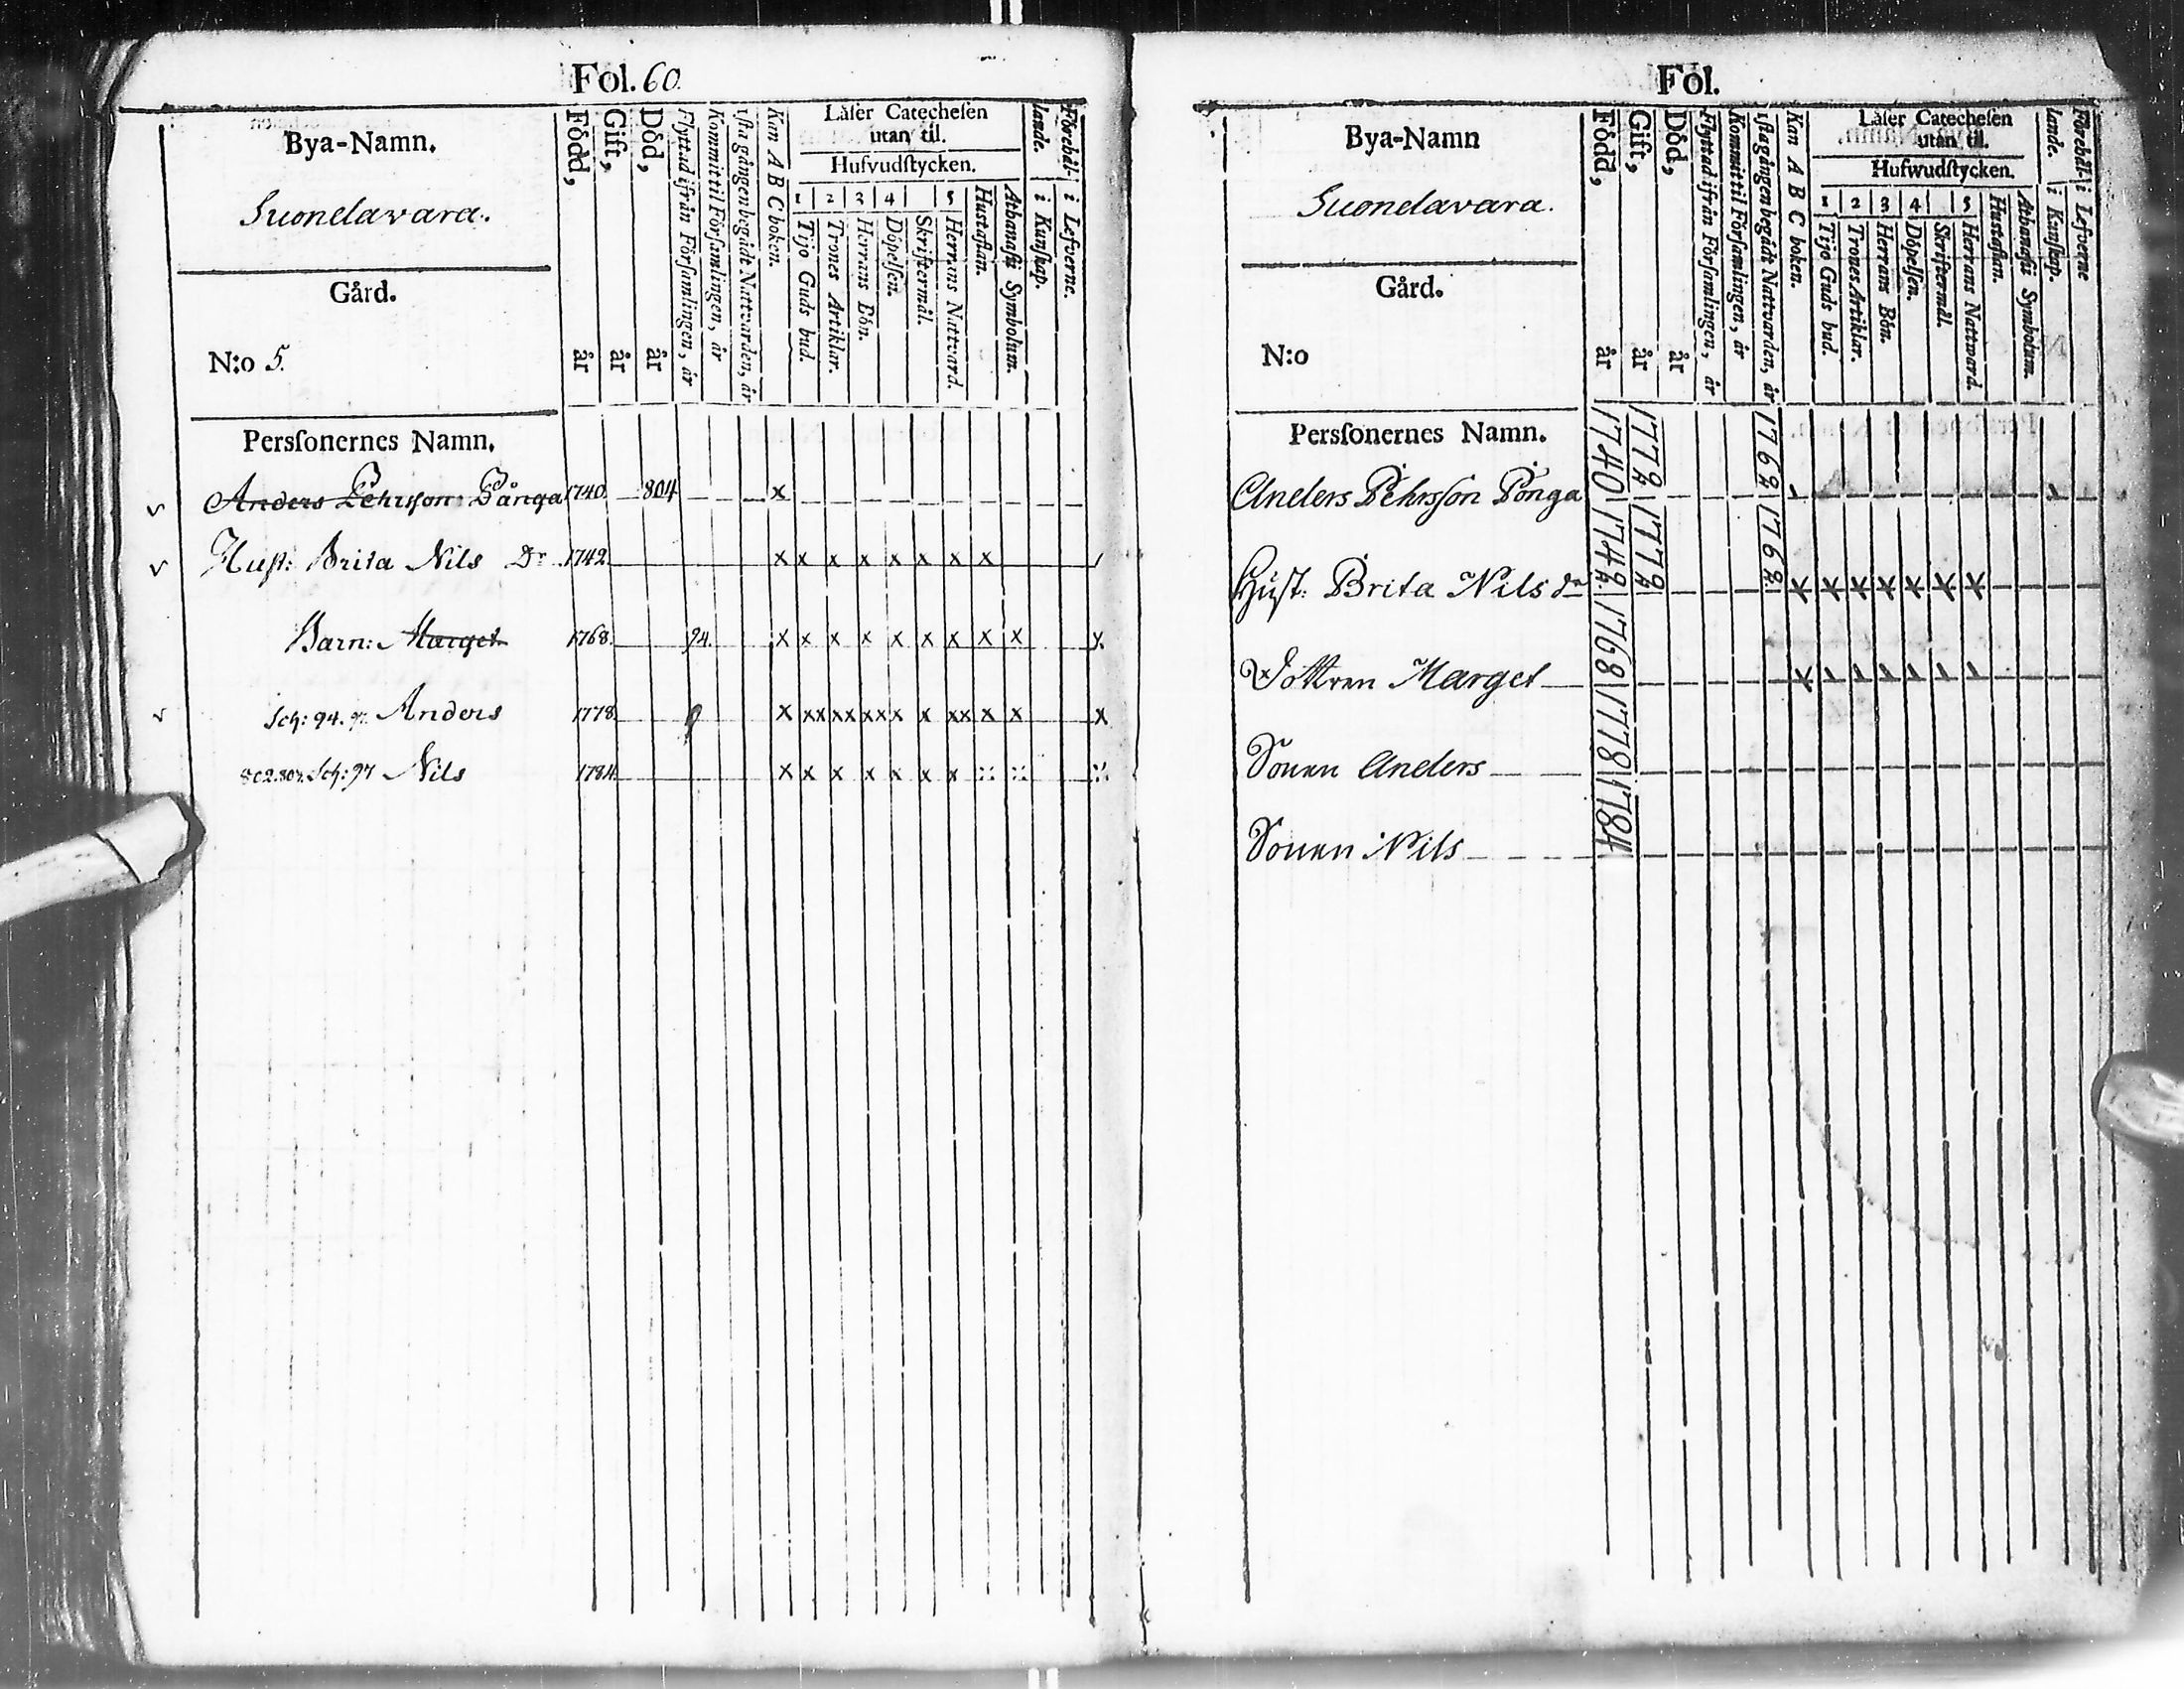 Fol. 60.
Bya-Namn.
Suonelavara.
Gård.
N:o 5.
Född, år
Gift, år
Död, år
Flyttad ifrån Förſamlingen, år
Kommit til Förſamlingen, år
1ſta gången begådt Nattvarden, år
Kan A B C boken.
Läſer Catecheſen
utan til.
Hufvudſtycken.
1 2 3 4 5
Tijo Guds bud.
Trones Artiklar.
Herrans Bön.
Döpelſen.
Skriftermål.
Herrans Natvard.
Hustaflan.
Athanaſii Symbolum.
Förehål-
lande.
i Kunſkap.
i Lefverne.
Perſſonernes Namn.
Anders Pehrſſon Pånga 1740 804 x
Huſt: Brita Nils Dr 1742 x x x x x x x x
Barn: Marget 1768 94. x x x x x x x x x x
Sch: 94. Anders 1778 x xx xx xx x x xx x x x
Sch: 97 Nils 1784 x x x x x x x
Fol.
Bya-Namn
Suonelavara.
Gård.
N:o
Född, år
Gift, år
Död, år
Flyttad ifrån Förſamlingen, år
Kommit til Förſamlingen, år
1ſta gången begådt Nattvarden, år
Kan A B C boken.
Läſer Catecheſen
utan til.
Hufwudſtycken.
1 2 3 4 5
Tijo Guds bud.
Trones Artiklar.
Herrans Bön.
Döpelſen.
Skriftermål.
Herrans Nattward.
Hustaflan.
Athanaſii Symbolum.
Förehål-
lande.
i Kunſkap.
i Lefverne
Perſſonernes Namn.
Anders Pehrsſon Pönga 1740
Huſt: Brita Nils dr x x x x x x x
Dottren Marget 1768 x
Sonen Anders 1778
Sonen Nils 1784